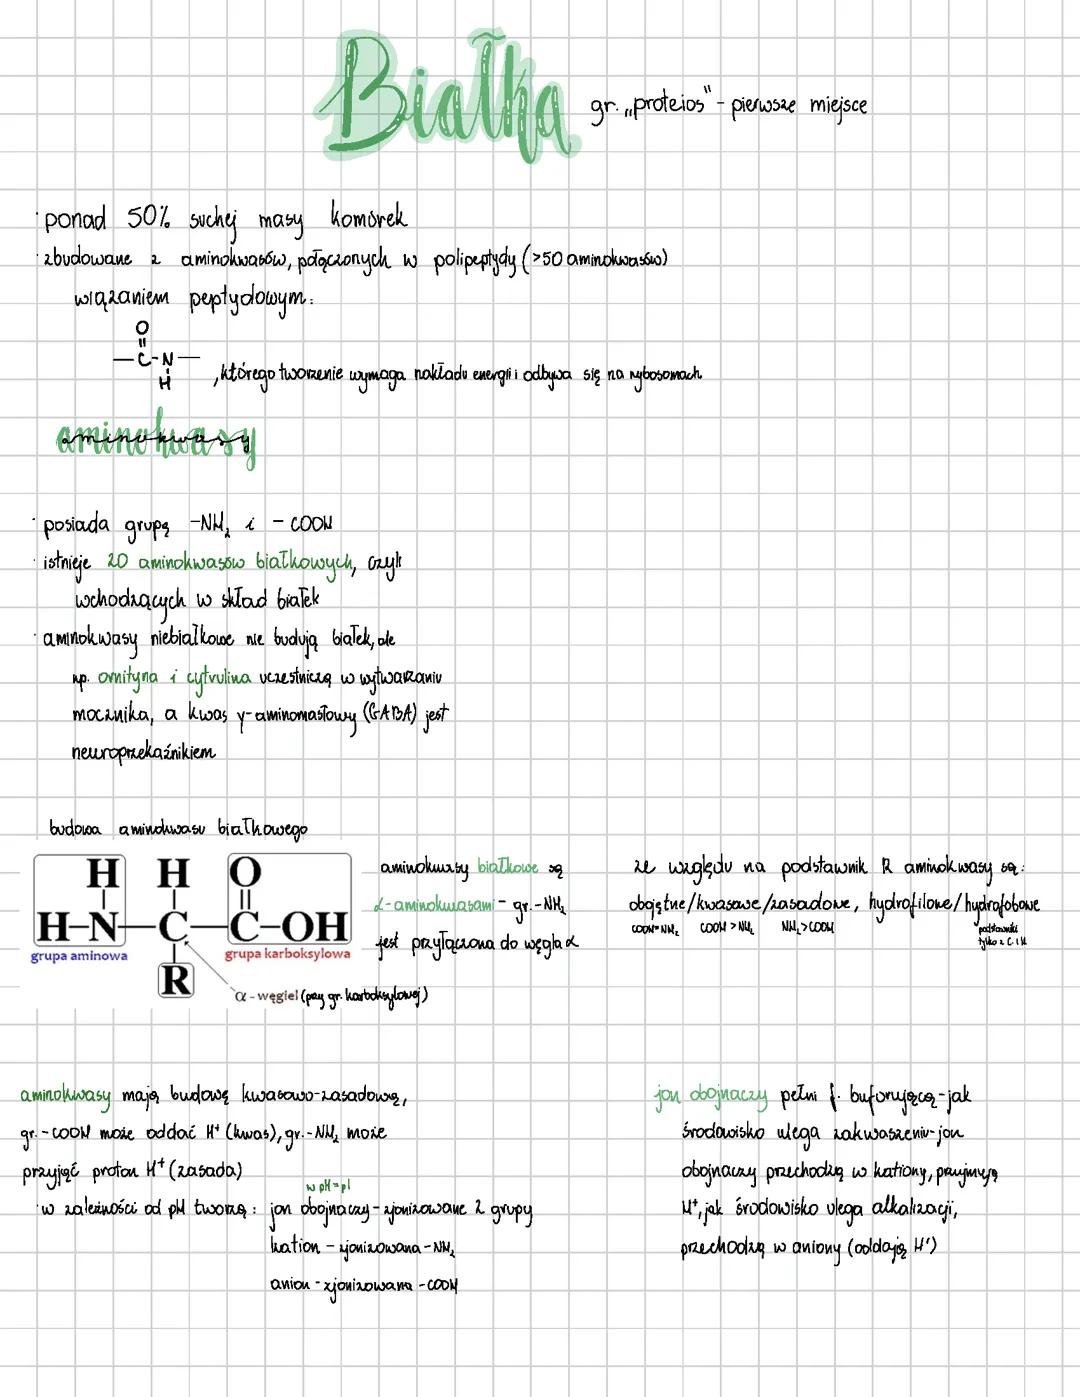 Białka
gr. „proteios" - pierwsze miejsce
· ponad 50% suchej masy komórek
· zbudowane z aminokwasów, połączonych w polipeptydy (>50 aminokwasów)
wiązaniem peptydowym:
O
=
—C-N—
H
, którego tworzenie wymaga nakładu energii i odbywa się na rybosomach
aminokwasy
· posiada grupę -NH₂ i - COOH
· istnieje 20 aminokwasów białkowych, czyli
wchodzących w skład białek
· aminokwasy niebiałkowe nie budują białek, ale
np. ornityna i cytrulina uczestniczą w wytwarzaniu
mocznika, a kwas γ-aminomasłowy (GABA) jest
neuroprzekaźnikiem
budowa aminokwasu białkowego
H H O
H-N-C-C-OH
grupa aminowa
grupa karboksylowa
R
α - węgiel (przy gr. karboksylowej)
aminokwasy białkowe są
α-aminokwasami - gr. -NH₂
jest przyłączona do węgla α
ze względu na podstawnik R aminokwasy są:
obojętne/kwasowe/zasadowe, hydrofilowe/hydrofobowe
COOH=NH₂ COOH > NH₂ NH₂>COOH
podstawniki
tylko z C i H
aminokwasy mają budowę kwasowo-zasadową,
gr. -COOH może oddać H⁺ (kwas), gr. -NH₂ może
przyjąć proton H⁺ (zasada)
w pH=pI
· w zależności od pH tworzą: jon obojnaczy - zjonizowane 2 grupy
kation - zjonizowana -NH₂
anion - zjonizowana -COOH
jon obojnaczy pełni f. buforującą - jak
środowisko ulega zakwaszeniu - jon
obojnaczy przechodzą w kationy, przyjmują
H⁺, jak środowisko ulega alkalizacji,
przechodzą w aniony (oddają H⁺)